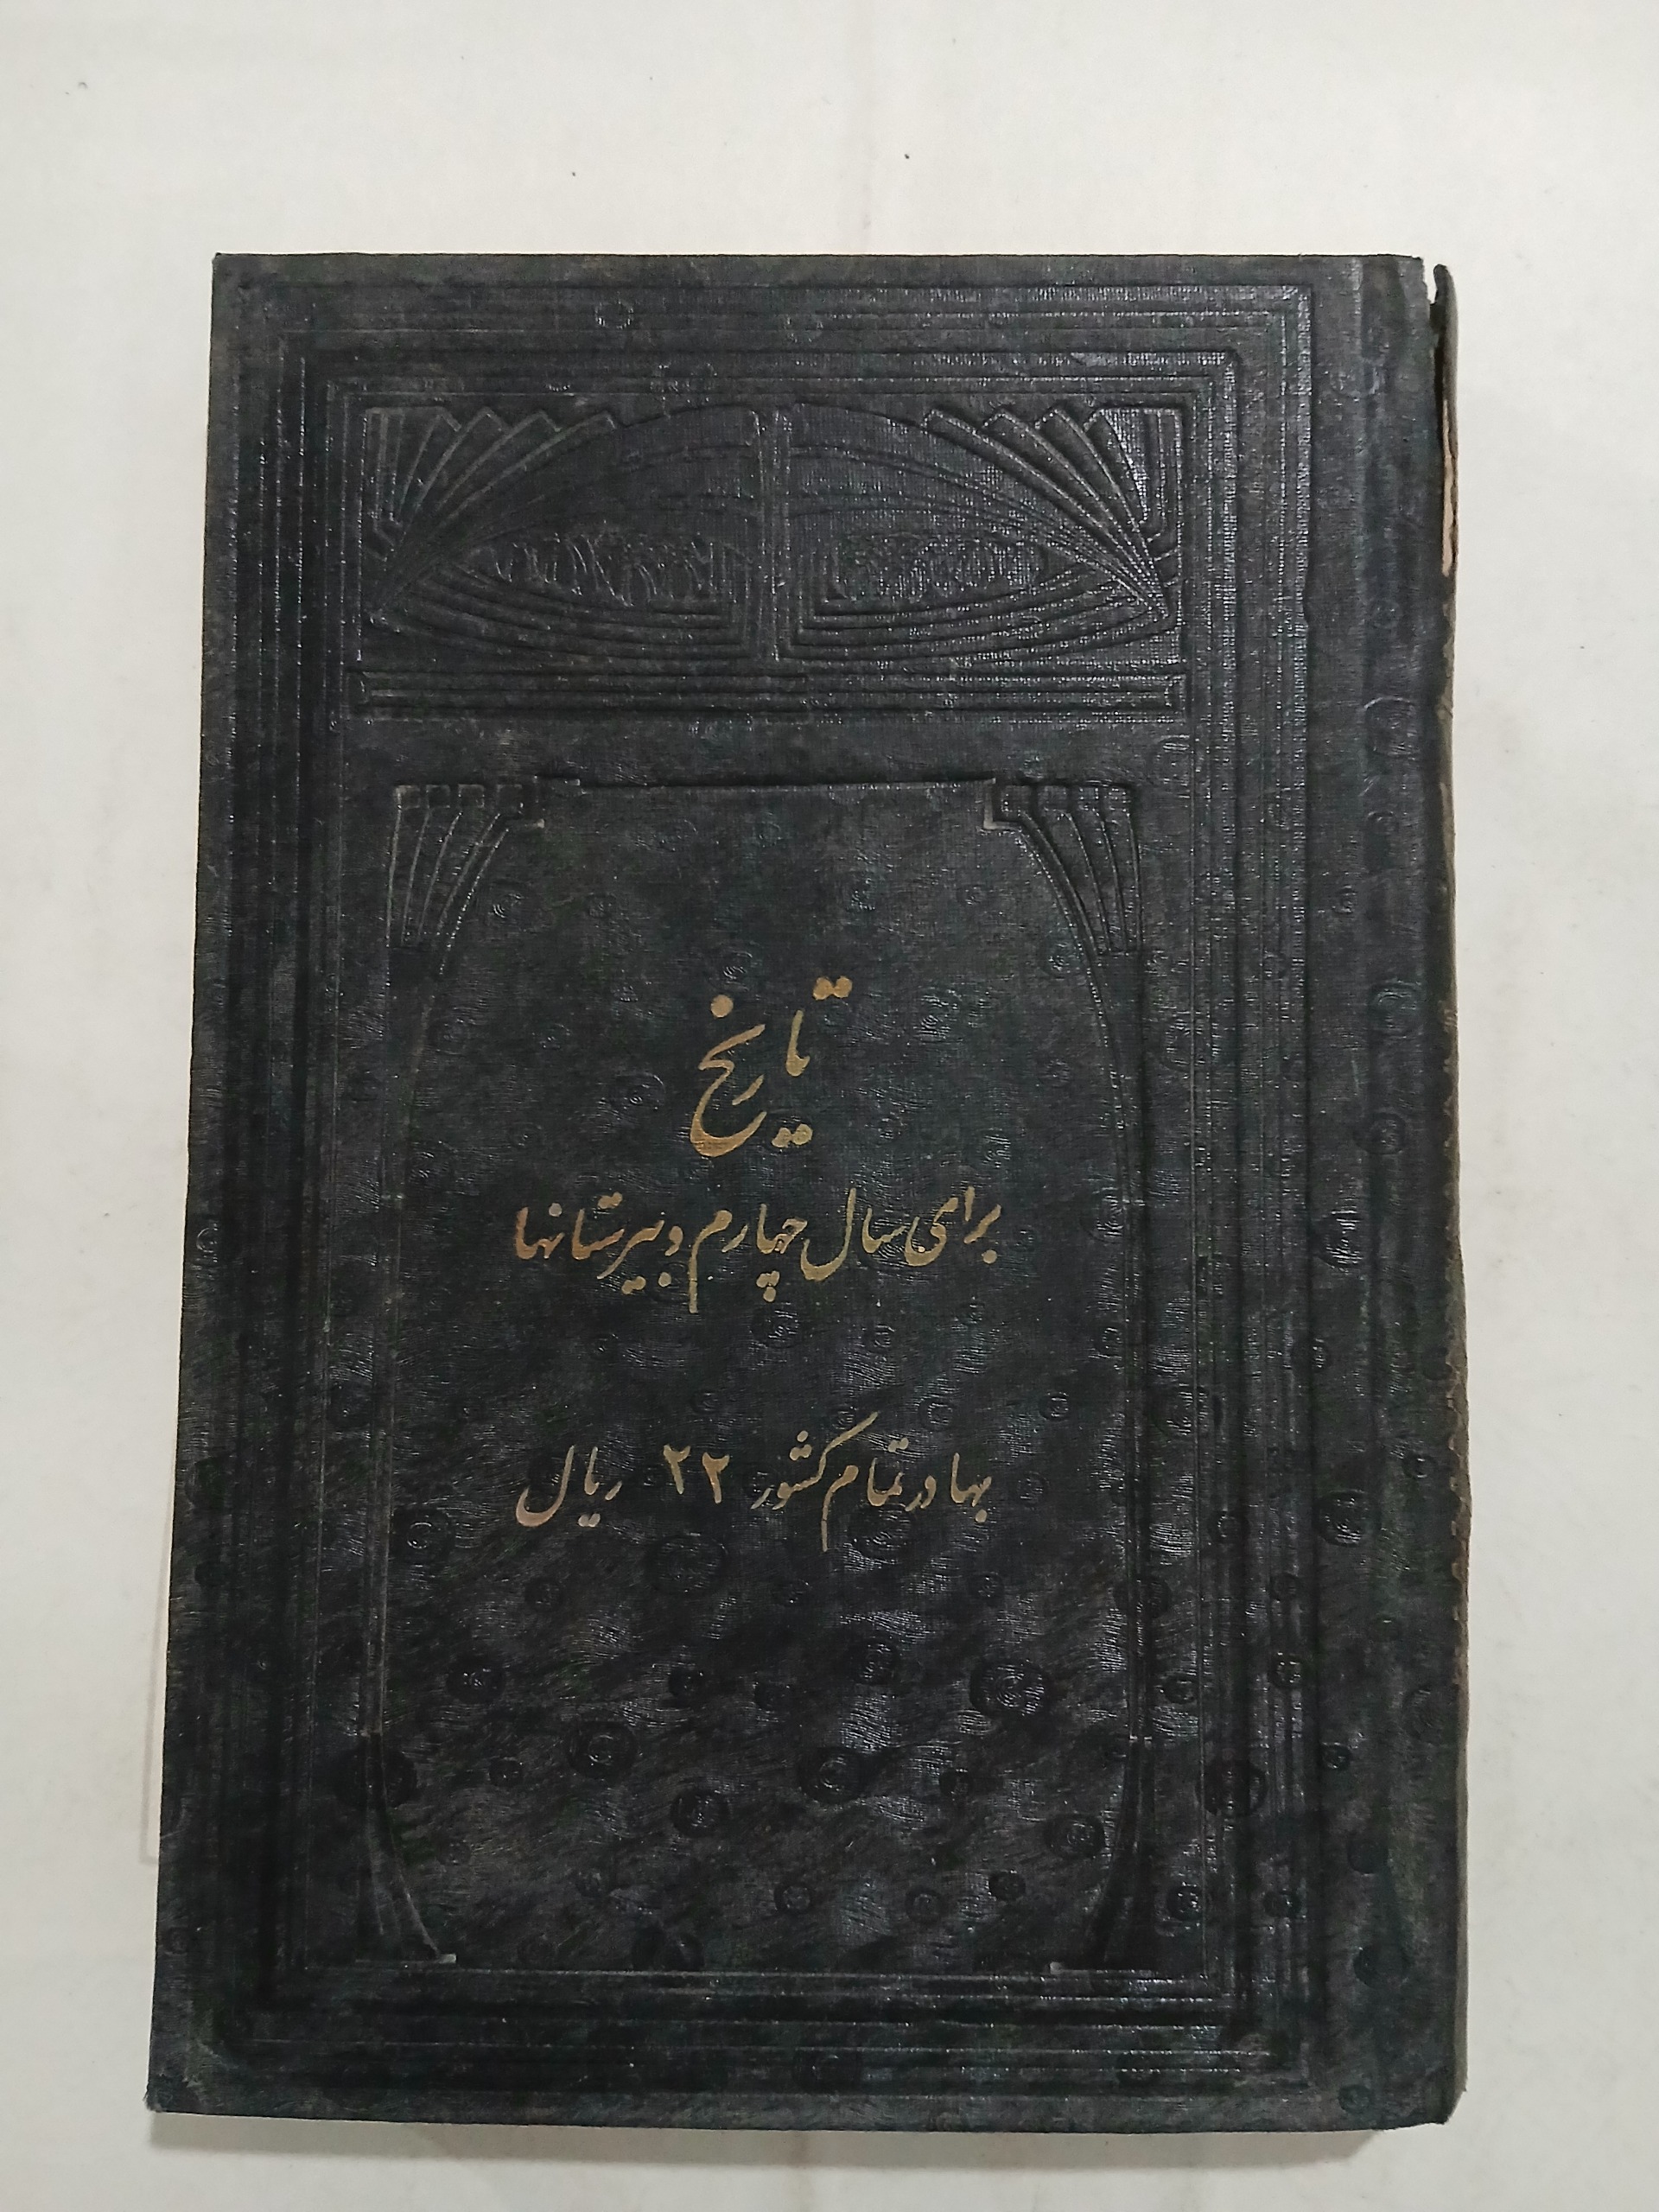 تاریخ
برای سال چهارم دبیرستانها
بها در تمام کشور ۲۲ ریال